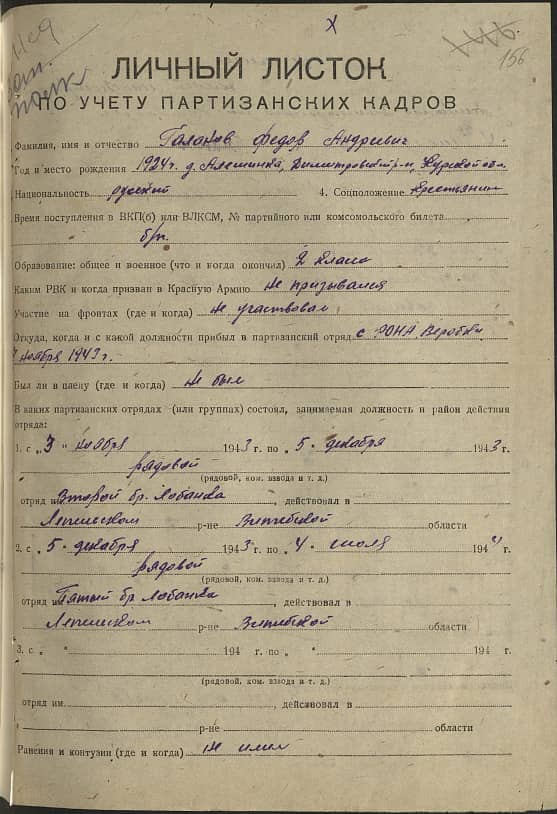 156
ЛИЧНЫЙ ЛИСТОК
ПО УЧЕТУ ПАРТИЗАНСКИХ КАДРОВ
Фамилия, имя и отчество Галанов Федор Андреевич
Год и место рождения 1924 г. д. Алешинка, Димитровский р-н, Курской обл.
Национальность русский 4. Соцположение Крестьянин
Время поступления в ВКП(б) или ВЛКСМ, № партийного или комсомольского билета
б/п.
Образование: общее и военное (что и когда окончил) 2 класса
Каким РВК и когда призван в Красную Армию не призывался
Участие на фронтах (где и когда) не участвовал
Откуда, когда и с какой должности прибыл в партизанский отряд с РОНА,
ноября 1943 г.
Был ли в плену (где и когда) не был
В каких партизанских отрядах (или группах) состоял, занимаемая должность и район действия
отряда:
1. с „3" ноября 1943 г. по „5" декабря 1943 г.
рядовой
(рядовой, ком. взвода и т. д.)
отряд им Второй бр. Лобанка, действовал в
Лепельском р-не Витебской области
2. с „5" декабря 1943 г. по „4" июля 1944 г.
рядовой
(рядовой, ком. взвода и т. д.)
отряд им Пятый бр Лобанка, действовал в
Лепельском р-не Витебской области
3. с „ " 194 г. по „ " 194 г.
(рядовой, ком. взвода и т. д.)
отряд им. , действовал в
р-не области
Ранения и контузии (где и когда) не имел